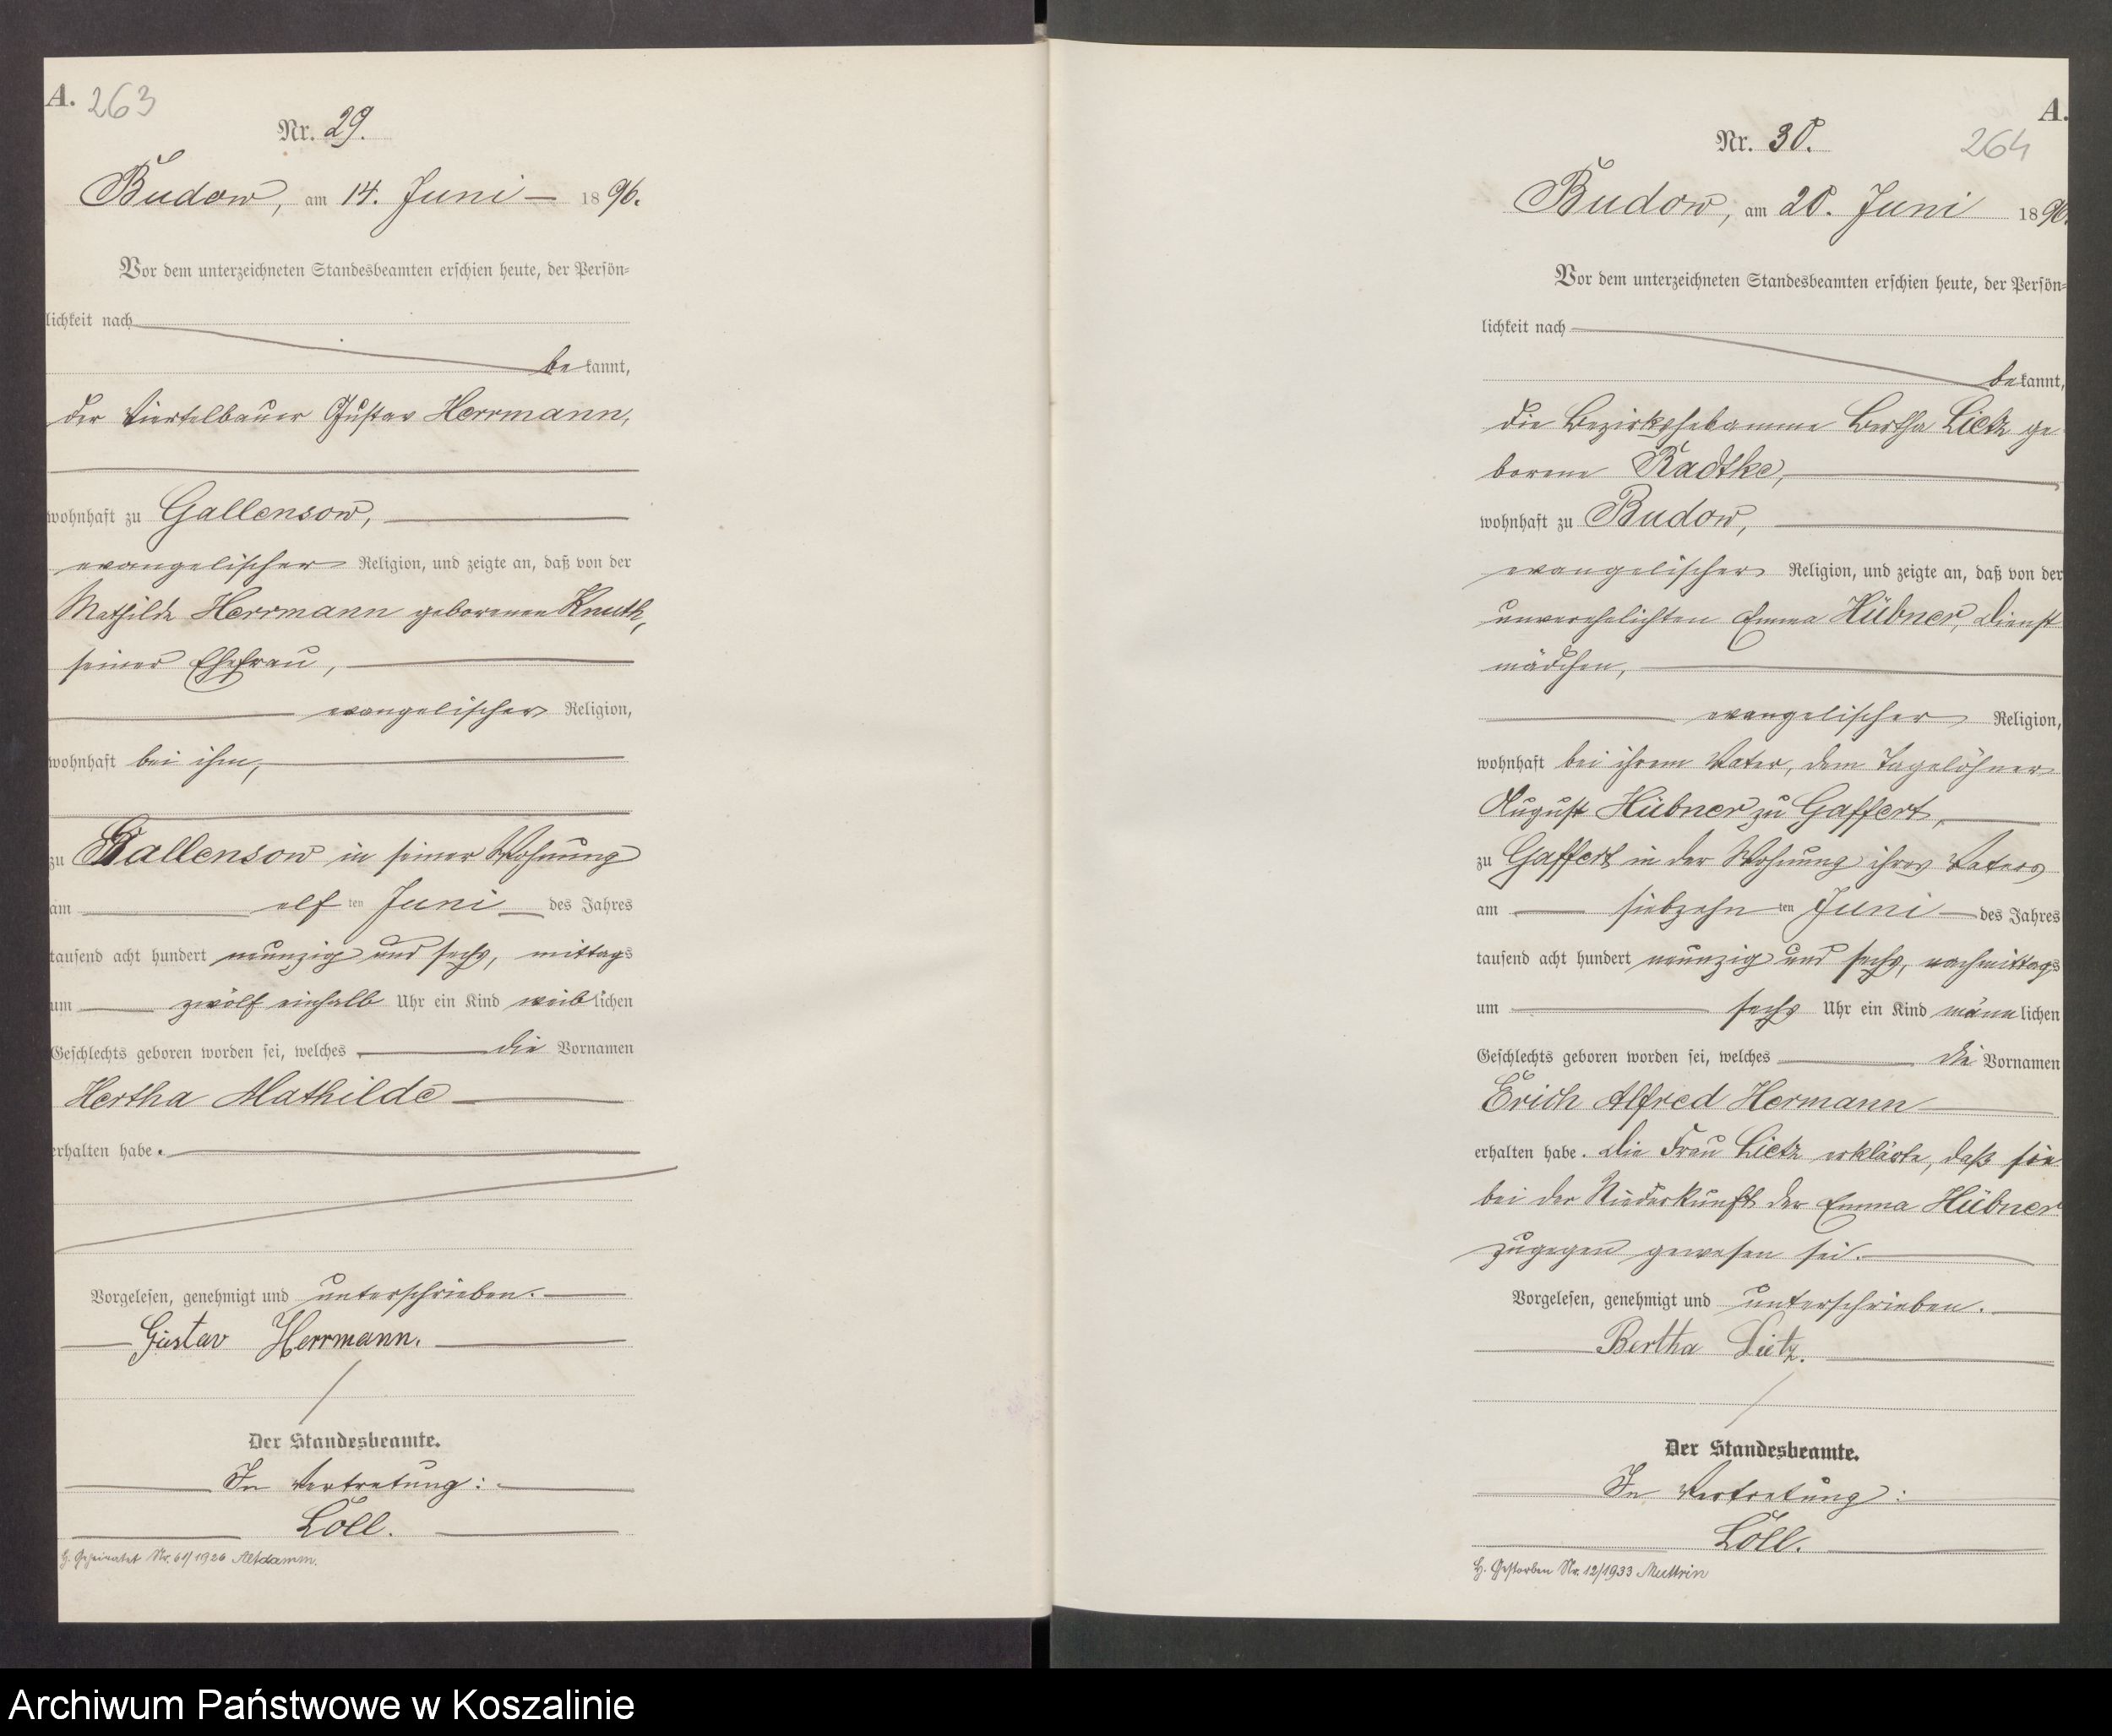 A. 263
Nr. 29.
Budow, am 14. Juni 1896.
Vor dem unterzeichneten Standesbeamten erschien heute, der Persön-
lichkeit nach
bekannt,
der Viertelbauer Gustav Herrmann,
wohnhaft zu Gallensow,
evangelischer Religion, und zeigte an, daß von der
Mathilde Herrmann geborenen Knuth,
seiner Ehefrau,
evangelischer Religion,
wohnhaft bei ihm,
zu Gallensow in seiner Wohnung
am elf ten Juni des Jahres
tausend acht hundert neunzig und sechs, mittags
um zwölf einhalb Uhr ein Kind weiblichen
Geschlechts geboren worden sei, welches die Vornamen
Hertha Mathilde
erhalten habe.
Vorgelesen, genehmigt und unterschrieben.
Gustav Herrmann.
Der Standesbeamte.
In Vertretung:
Löll.
H. Geheiratet Nr. 61/1926 Altdamm.
A.
Nr. 30.
264
Budow, am 20. Juni 1896.
Vor dem unterzeichneten Standesbeamten erschien heute, der Persön-
lichkeit nach
bekannt,
die Bezirkshebamme Bertha Lietz ge
borene Radtke,
wohnhaft zu Budow,
evangelischer Religion, und zeigte an, daß von der
unverehelichten Emma Hübner, Dienst
mädchen,
evangelischer Religion,
wohnhaft bei ihrem Vater, dem Tagelöhner
August Hübner zu Gaffert,
zu Gaffert in der Wohnung ihres Vaters
am siebzehn ten Juni des Jahres
tausend acht hundert neunzig und sechs, nachmittags
um sechs Uhr ein Kind männlichen
Geschlechts geboren worden sei, welches die Vornamen
Erich Alfred Hermann
erhalten habe. Die Frau Lietz erklärte, daß sie
bei der Niederkunft der Emma Hübner
zugegen gewesen sei.
Vorgelesen, genehmigt und unterschrieben.
Bertha Lietz.
Der Standesbeamte.
In Vertretung:
Löll.
H. Gestorben Nr. 12/1933 Muttrin
Archiwum Państwowe w Koszalinie